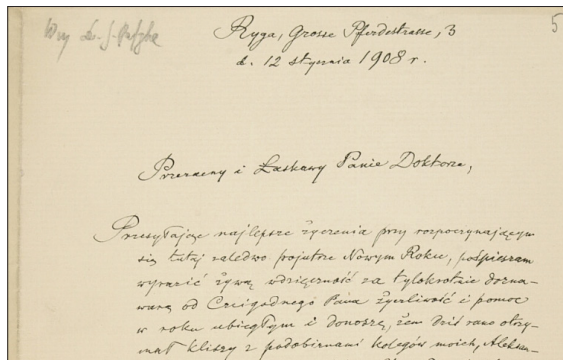 Ryga, Grosse Pferdestrasse, 3
d. 12 stycznia 1908 r.
5
Przezacny i Łaskawy Panie Doktorze,
Przesyłając najlepsze życzenia przy rozpoczynającym
się tutaj zaledwo pojutrze Nowym Roku, pośpieszam
wyrazić żywą wdzięczność za tylokrotnie dozna-
waną od Czcigodnego Pana życzliwość i pomoc
w roku ubiegłym i donoszę, żem dziś rano otrzy-
mał kliszy z podobiznami kolegów moich, Aleksan-